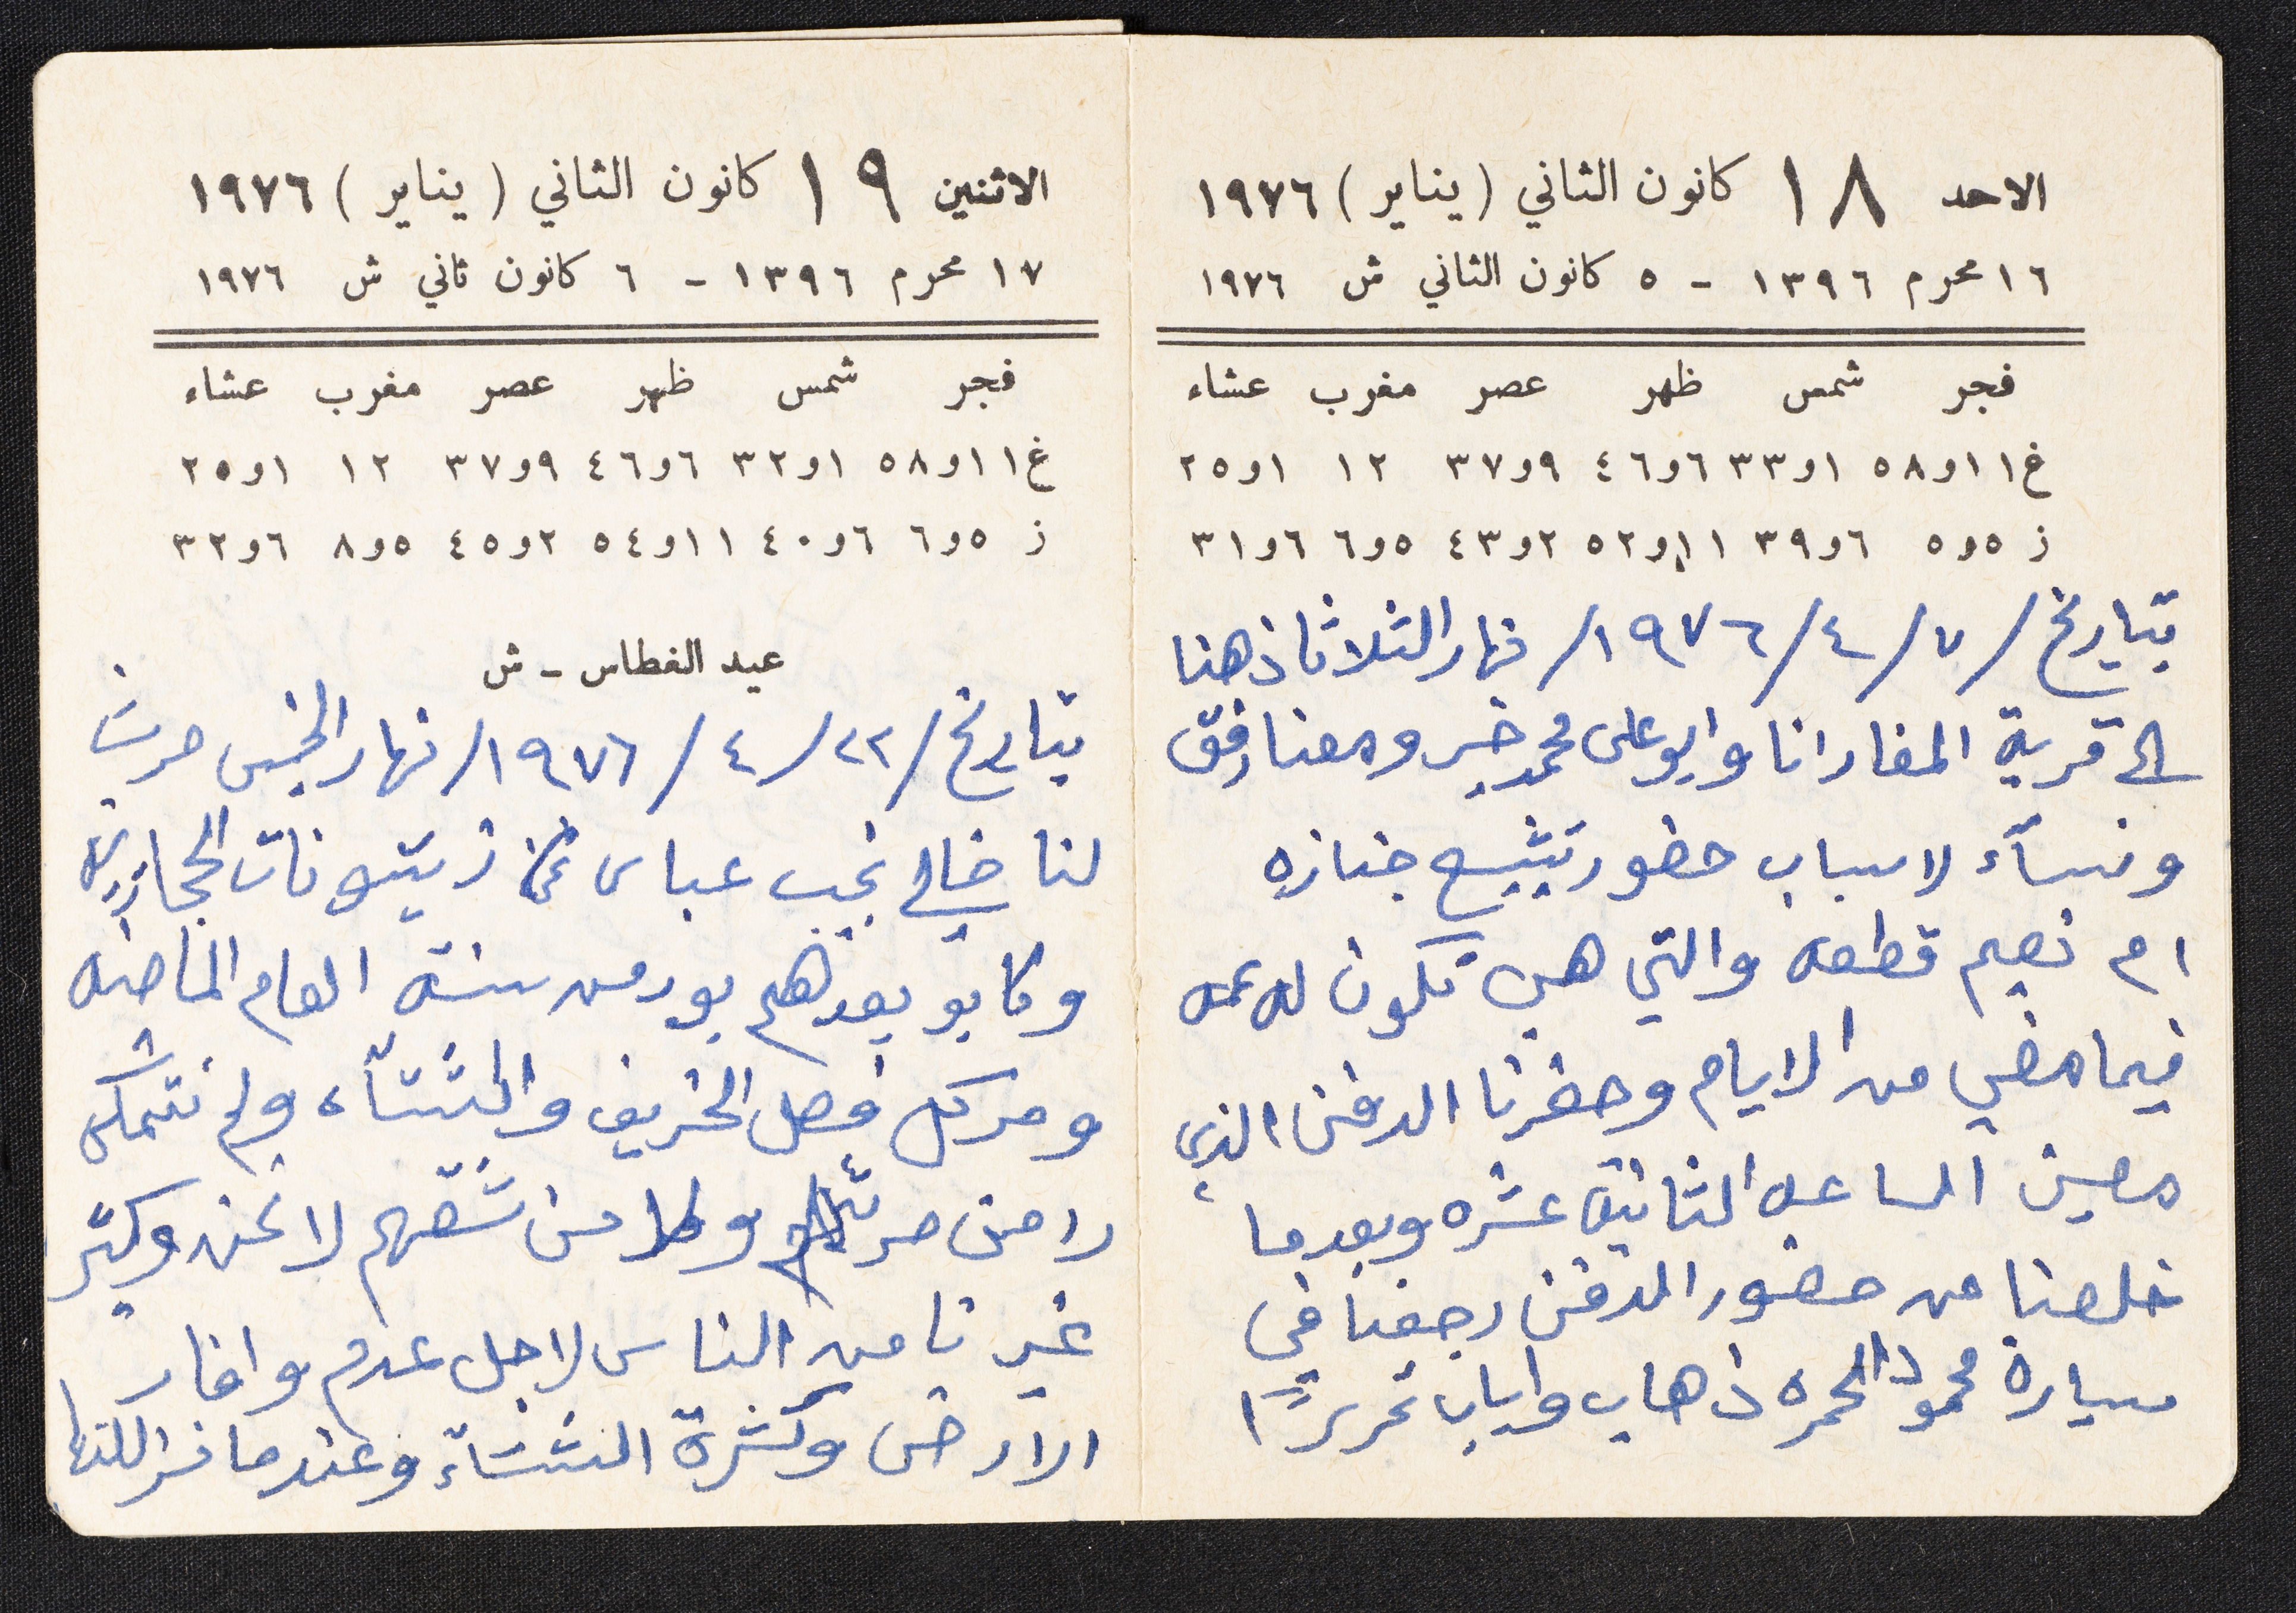 الاحد ١٨ كانون الثاني ( يناير ) ١٩٧٦
١٦ محرم ١٣٩٦ - ٥ كانون الثاني ش ١٩٧٦
فجر شمس ظهر عصر مغرب عشاء
غ ١١و٥٨ ١و٣٣ ٦و٤٦ ٩و٣٧ ١٢ ١و٢٥
ز ٥و٥ ٦و٣٩ ١١و٥٢ ٢و٤٣ ٥و٦ ٦و٣١
بتاريخ / ٧ / ٤ / ١٩٧٦ / نهار الثلاثا ذهبنا
الى قرية المغار انا وابو على محمد خير ومعنا رفق
ونسآء لاسباب حضور تشييع جنازه
ام نعيم قطعه والتي هي تكون له عمه
فيما مضي من الايام وحضرنا الدفن الذي
معين الساعه الثانيه عشره وبعدما
خلصنا من حضور الدفن رجعنا في
سيارة محمود الحمره ذهاب واياب تحريرًا
الاثنين ١٩ كانون الثاني ( يناير ) ١٩٧٦
١٧ محرم ١٣٩٦ - ٦ كانون ثاني ش ١٩٧٦
فجر شمس ظهر عصر مغرب عشاء
غ ١١و٥٨ ١و٣٢ ٦و٤٦ ٩و٣٧ ١٢ ١و٢٥
ز ٥و٦ ٦و٤٠ ١١و٥٤ ٢و٤٥ ٥و٨ ٦و٣٢
عيد الغطاس - ش
بتاريخ / ٢٢ / ٤ / ١٩٧٦ / نهار الخميس حرث
لنا خالي نجيب عباس زيتونات الحجاريه
وكانو بعدهم بور من سنة العام الماضيه
ومر كل فصل الخريف والشتآء ولم نتمكن
لا من حرثهم ولا من شقهم لا نحن وكثير
غيرنا من الناس لاجل عدم
الارض وكثرة الشتآء وعندما